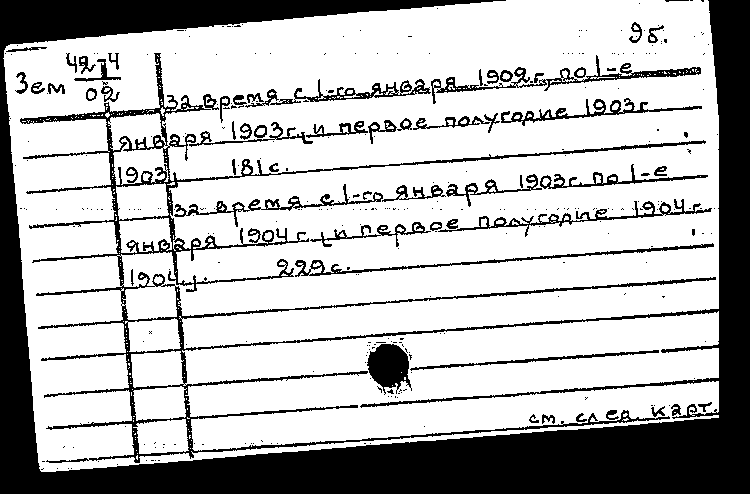 9б.
Зем 42-4
02
за время с 1-го января 1902г. по 1-е
января 1903г. и первое полугодие 1903г.
1903. 181с.
за время с 1-го января 1903г. по 1-е
января 1904г. и первое полугодие 1904г.
1904. 229с.
см. след. карт.